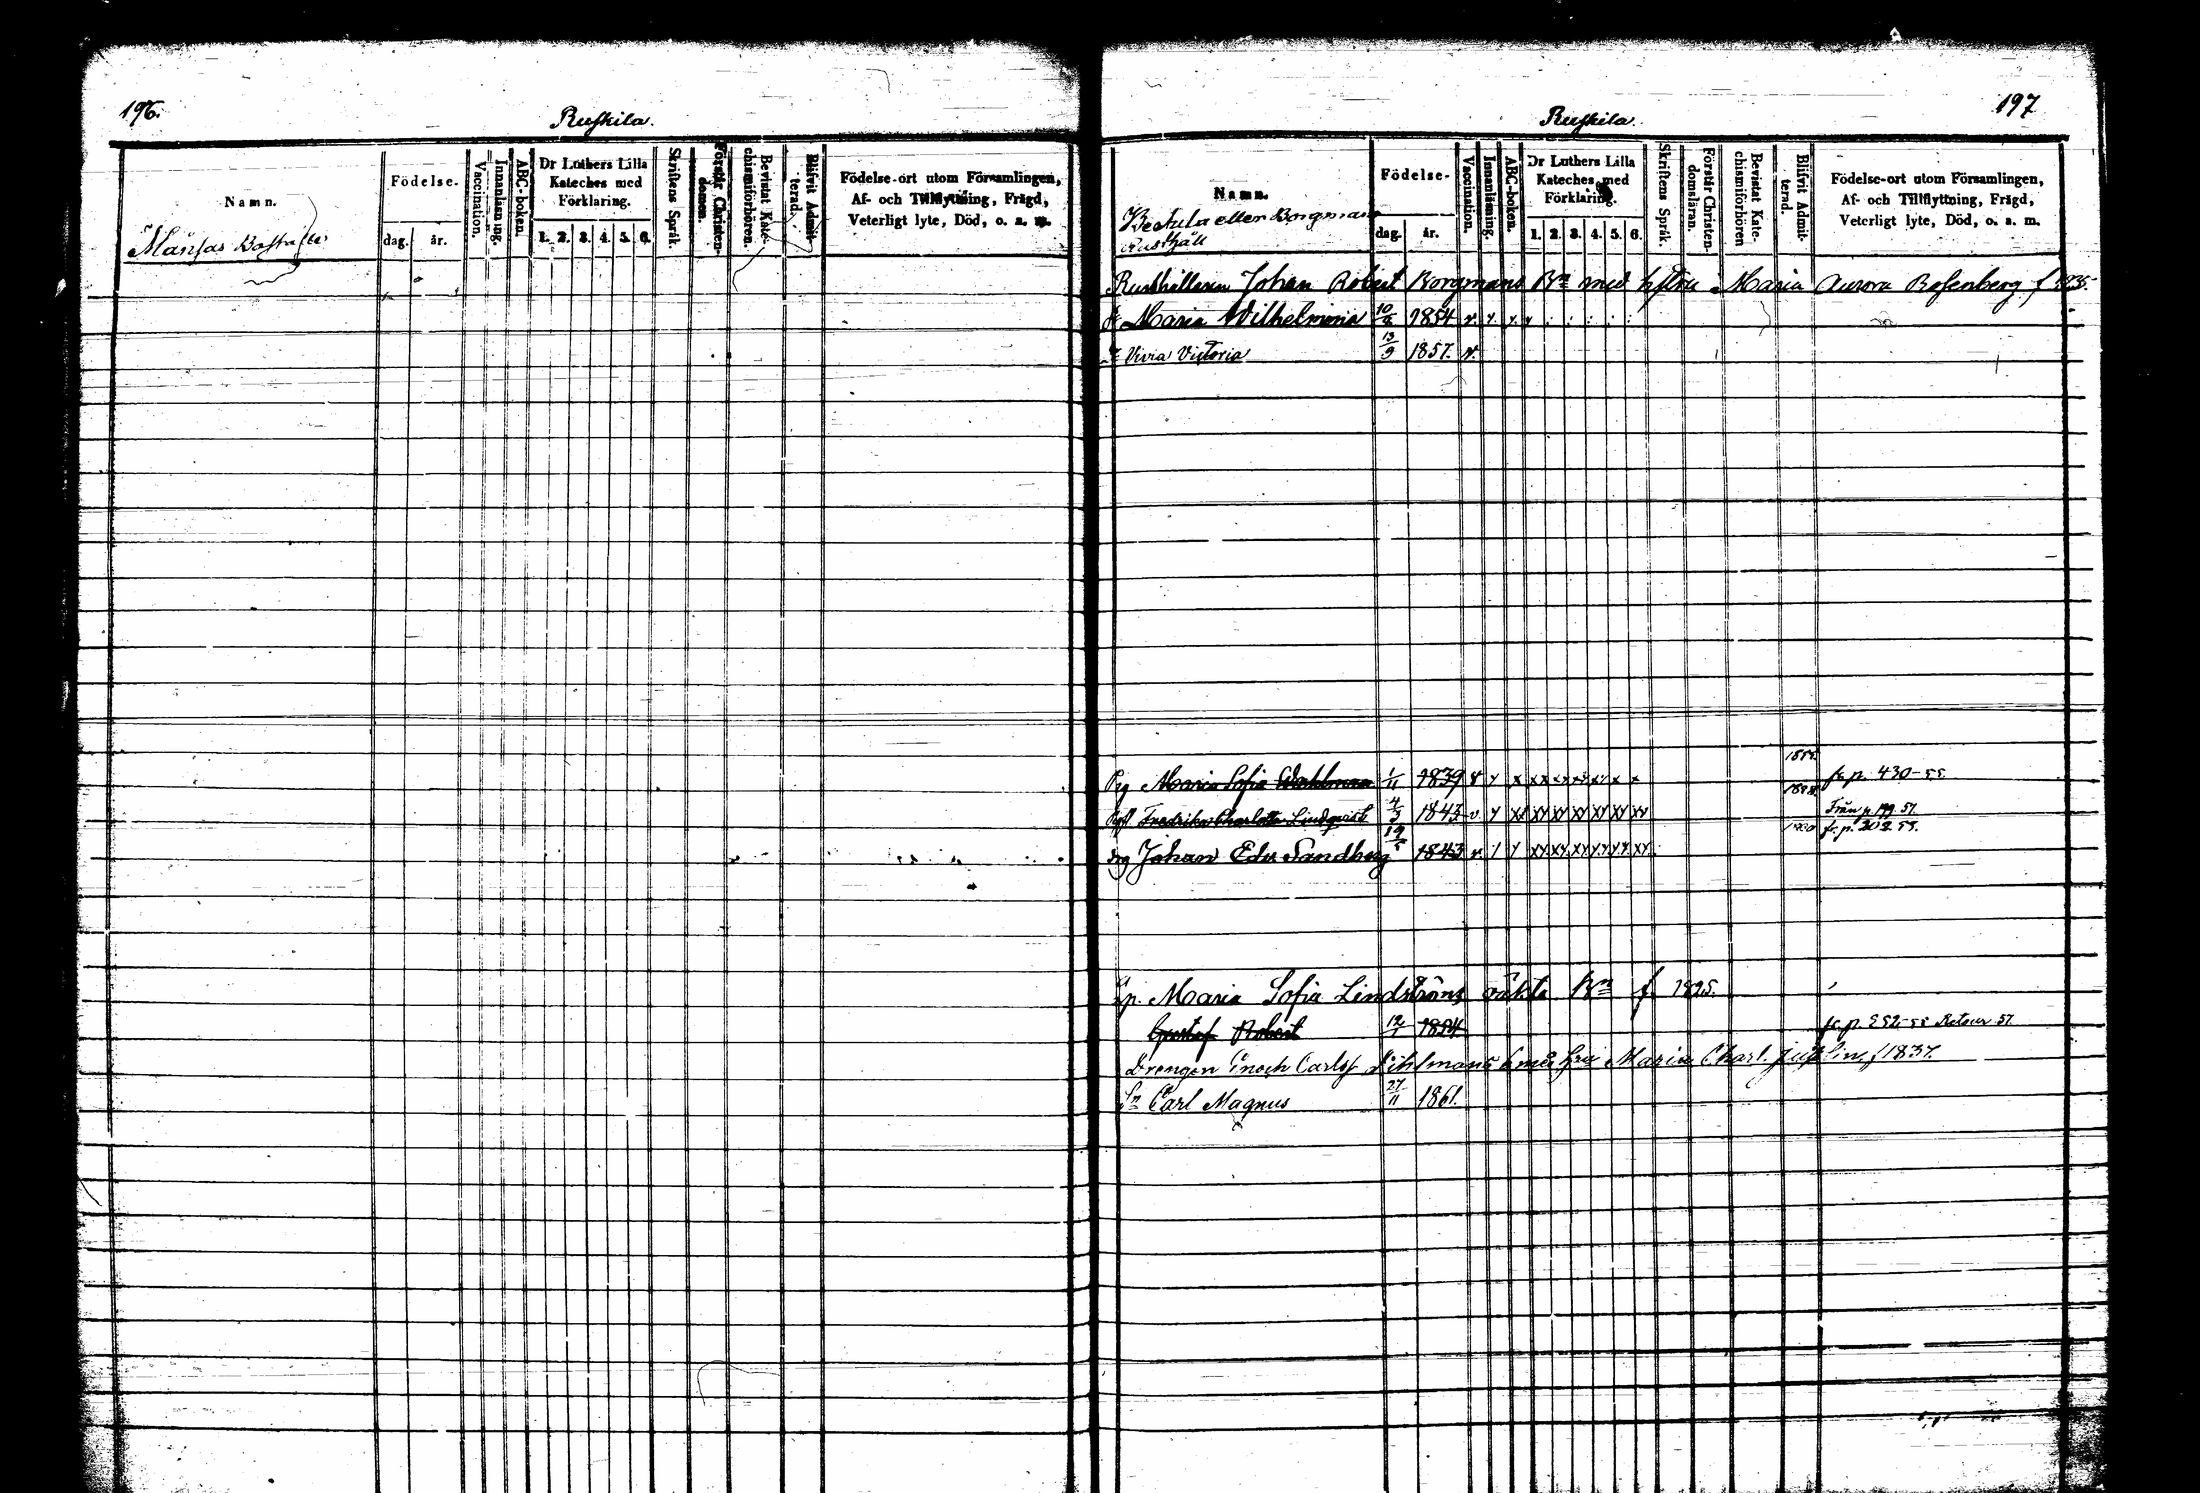 196.
Ruskila.
Namn.
Födelse-
dag.
år.
Vaccination.
Innanläsning.
ABC-boken.
Dr Luthers Lilla
Kateches med
Förklaring.
1. 2. 3. 4. 5. 6.
Skriftens Språk.
Förstår Christen-
domen.
Bevistat Kate-
chismiförhören.
Blifvit Admit-
terad.
Födelse-ort utom Församlingen,
Af- och Tillflyttning, Frägd,
Veterligt lyte, Död, o. a. m.
197
Ruskila.
Namn.
eller Borgmans
Rusthåll
Födelse-
dag.
år.
Vaccination.
Innanläsning.
ABC-boken.
Dr Luthers Lilla
Kateches med
Förklaring.
1. 2. 3. 4. 5. 6.
Skriftens Språk.
Förstår Christen-
domsläran.
Bevistat Kate-
chismiförhören
Blifvit Admit-
terad.
Födelse-ort utom Församlingen,
Af- och Tillflyttning, Frägd,
Veterligt lyte, Död, o. a. m.
Rusthållaren Johan Robert Borgmans Bn med hustru Maria Aurora
Maria Wilhelmina 1854 v. y. y. y
Vivia Victoria 13/9 1857. v.
Pig Maria Sofia 1/11 1839 v y x fr. p. 430-55
Fredrika Charlotta Lindqvist 4/3 1843 v y Från p. 199. 57.
drg Johan Edv Sandberg 19/5 1843 v. fr. p. 202. 59.
Maria Sofia Lindströms oäkta Bn f. 1825.
Gustaf Robert 12/1 1854 fr. p. 252-55 Retour 57.
Drengen Enoch Carlsf med Maria Charl. f 1837.
Sn Carl Magnus 27/11 1861.